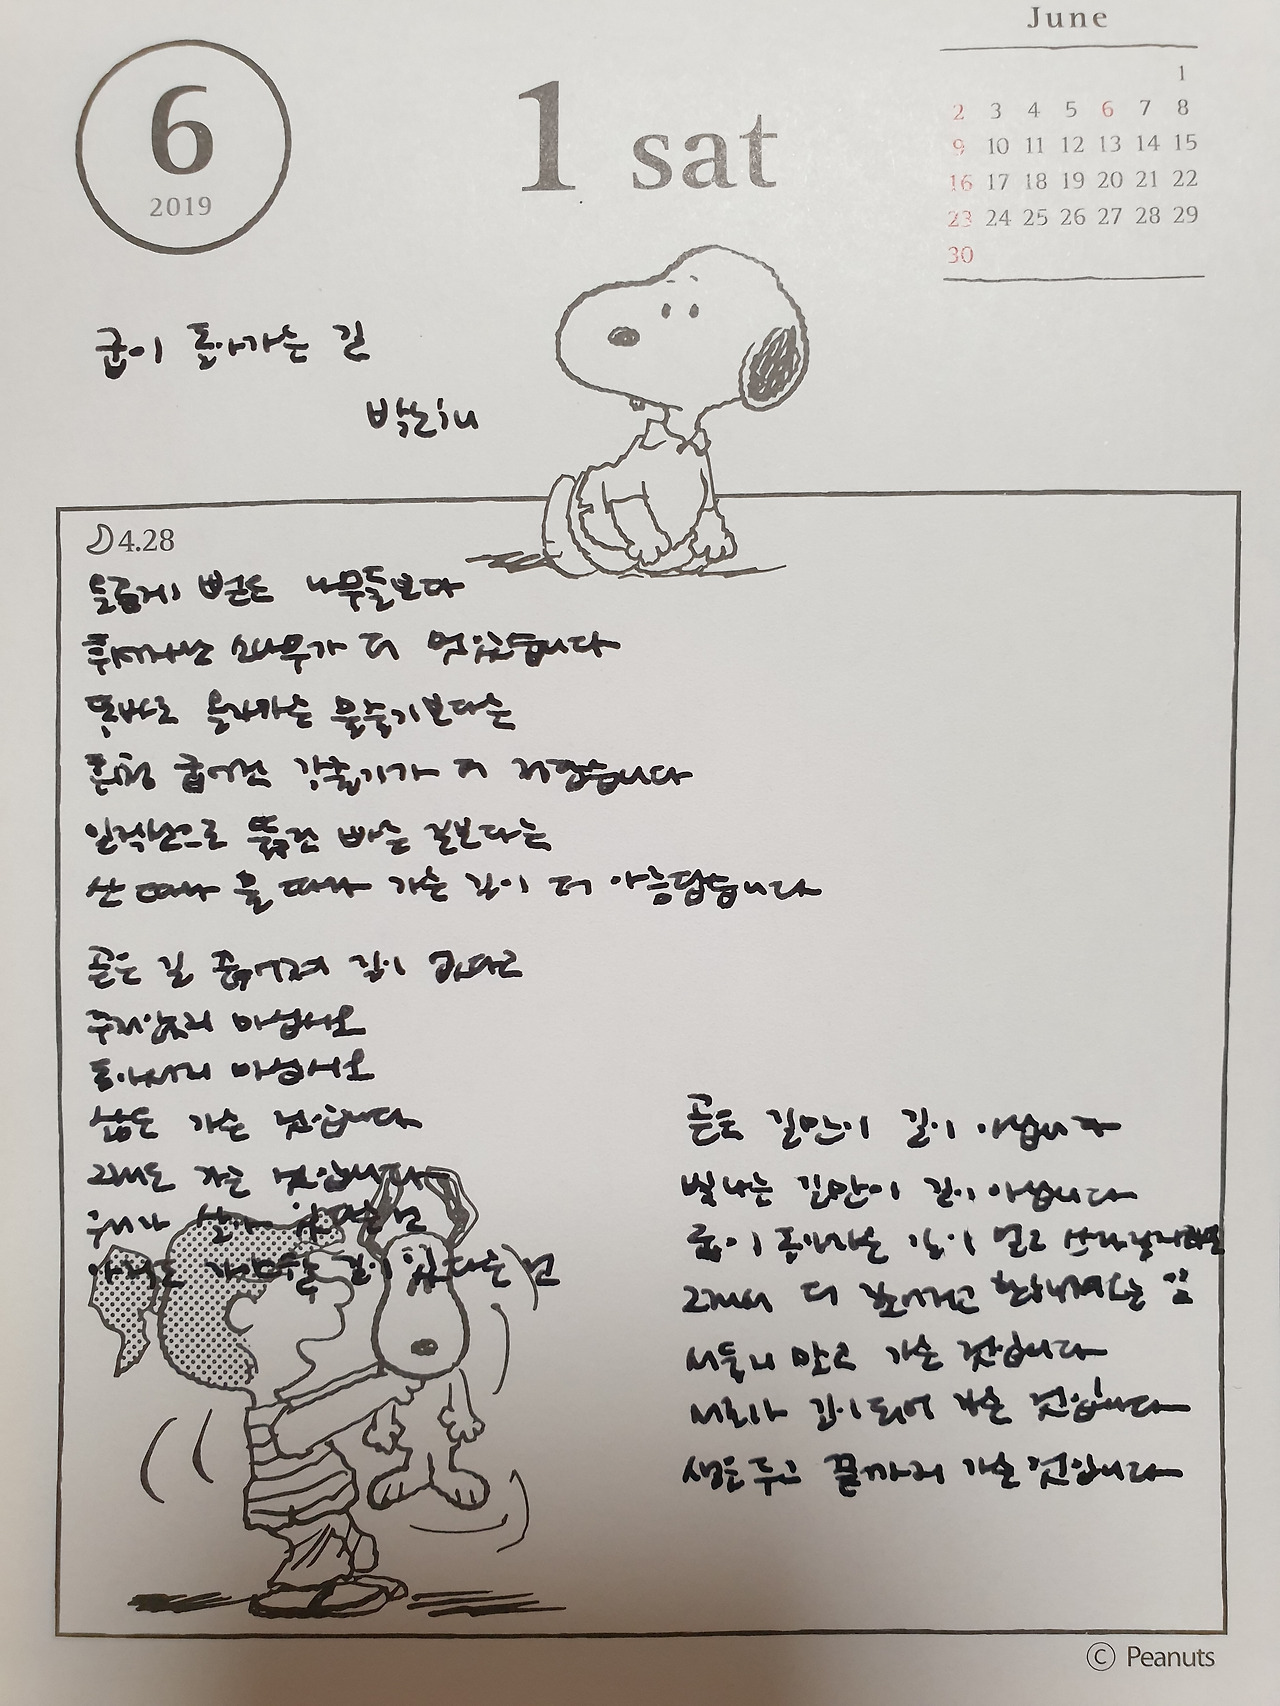 June
6
2019
1 sat
1
2 3 4 5 6 7 8
9 10 11 12 13 14 15
16 17 18 19 20 21 22
23 24 25 26 27 28 29
30
굽이 돌아가는 길
박노해
4.28
올곧게 뻗은 나무들보다
휘어자란 소나무가 더 멋있습니다
똑바로 흘러가는 물줄기보다는
휘청 굽어진 강줄기가 더 정답습니다
일직선으로 뚫린 빠른 길보다는
산 따라 물 따라 가는 길이 더 아름답습니다
곧은 길 끊어져 길이 없다고
주저앉지 마십시오
돌아서지 마십시오
삶은 가는 것입니다
그래도 가는 것입니다
우리가 있다는 건
아직도 가야 길이 있다는 건
곧은 길만이 길이 아닙니다
빛나는 길만이 길이 아닙니다
굽이 돌아가는 길이 멀고 쓰라릴지라도
그래서 더 깊어지고 환해져오는 길
서둘지 말고 가는 것입니다
서로가 길이 되어 가는 것입니다
생을 두고 끝까지 가는 것입니다
© Peanuts